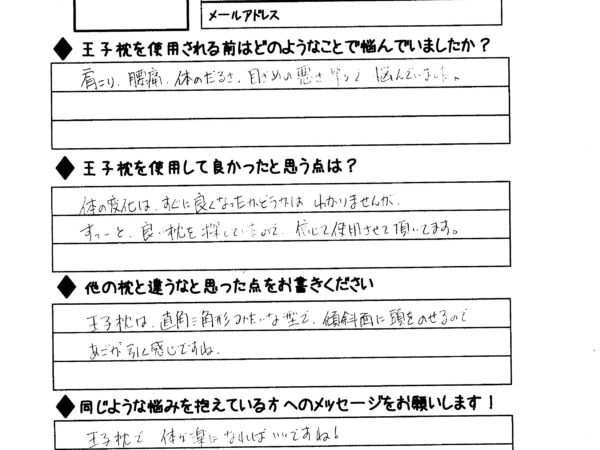 メールアドレス
◆ 王子枕を使用される前はどのようなことで悩んでいましたか？
肩こり、腰痛、体のだるさ、目ざめの悪さ 悩んでいました。
◆ 王子枕を使用して良かったと思う点は？
体の変化は、すぐに良くなったかどうかは わかりませんが、
ずっーと、良い枕を探していたので、信じて使用させて頂いてます。
◆ 他の枕と違うなと思った点をお書きください
王子枕は、直角三角形みたいな型で、傾斜面に頭をのせるので
あごが引く感じですね。
◆ 同じような悩みを抱えている方へのメッセージをお願いします！
王子枕で 体が楽になればいいですね！